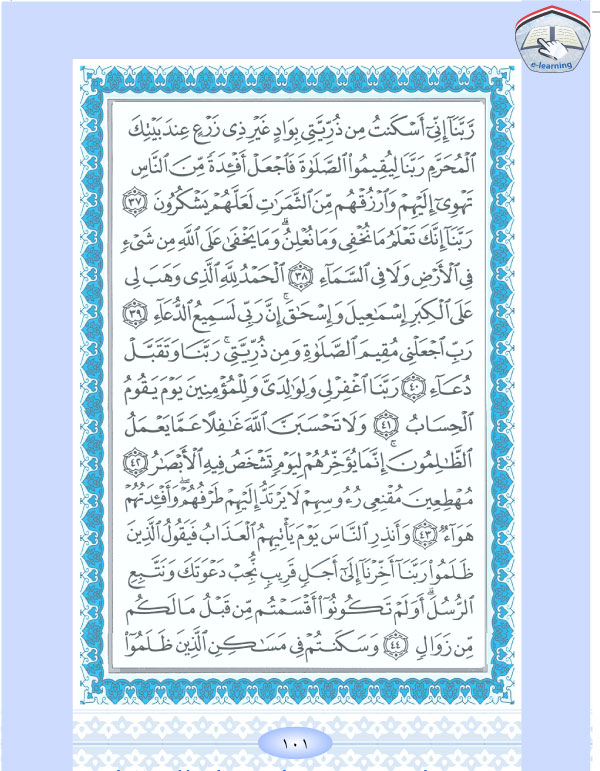 e-learning
رَّبَّنَآ إِنِّىٓ أَسْكَنتُ مِن ذُرِّيَّتِى بِوَادٍ غَيْرِ ذِى زَرْعٍ عِندَ بَيْتِكَ
ٱلْمُحَرَّمِ رَبَّنَا لِيُقِيمُوا۟ ٱلصَّلَوٰةَ فَٱجْعَلْ أَفْـِٔدَةً مِّنَ ٱلنَّاسِ
تَهْوِىٓ إِلَيْهِمْ وَٱرْزُقْهُم مِّنَ ٱلثَّمَرَٰتِ لَعَلَّهُمْ يَشْكُرُونَ ٣٧
رَبَّنَآ إِنَّكَ تَعْلَمُ مَا نُخْفِى وَمَا نُعْلِنُ ۗ وَمَا يَخْفَىٰ عَلَى ٱللَّهِ مِن شَىْءٍ
فِى ٱلْأَرْضِ وَلَا فِى ٱلسَّمَآءِ ٣٨ ٱلْحَمْدُ لِلَّهِ ٱلَّذِى وَهَبَ لِى
عَلَى ٱلْكِبَرِ إِسْمَٰعِيلَ وَإِسْحَٰقَ ۚ إِنَّ رَبِّى لَسَمِيعُ ٱلدُّعَآءِ ٣٩
رَبِّ ٱجْعَلْنِى مُقِيمَ ٱلصَّلَوٰةِ وَمِن ذُرِّيَّتِى ۚ رَبَّنَا وَتَقَبَّلْ
دُعَآءِ ٤٠ رَبَّنَا ٱغْفِرْ لِى وَلِوَٰلِدَىَّ وَلِلْمُؤْمِنِينَ يَوْمَ يَقُومُ
ٱلْحِسَابُ ٤١ وَلَا تَحْسَبَنَّ ٱللَّهَ غَٰفِلًا عَمَّا يَعْمَلُ
ٱلظَّٰلِمُونَ ۚ إِنَّمَا يُؤَخِّرُهُمْ لِيَوْمٍ تَشْخَصُ فِيهِ ٱلْأَبْصَٰرُ ٤٢
مُهْطِعِينَ مُقْنِعِى رُءُوسِهِمْ لَا يَرْتَدُّ إِلَيْهِمْ طَرْفُهُمْ ۖ وَأَفْـِٔدَتُهُمْ
هَوَآءٌ ٤٣ وَأَنذِرِ ٱلنَّاسَ يَوْمَ يَأْتِيهِمُ ٱلْعَذَابُ فَيَقُولُ ٱلَّذِينَ
ظَلَمُوا۟ رَبَّنَآ أَخِّرْنَآ إِلَىٰٓ أَجَلٍ قَرِيبٍ نُّجِبْ دَعْوَتَكَ وَنَتَّبِعِ
ٱلرُّسُلَ ۗ أَوَلَمْ تَكُونُوٓا۟ أَقْسَمْتُم مِّن قَبْلُ مَا لَكُم
مِّن زَوَالٍ ٤٤ وَسَكَنتُمْ فِى مَسَٰكِنِ ٱلَّذِينَ ظَلَمُوٓا۟
١٠١